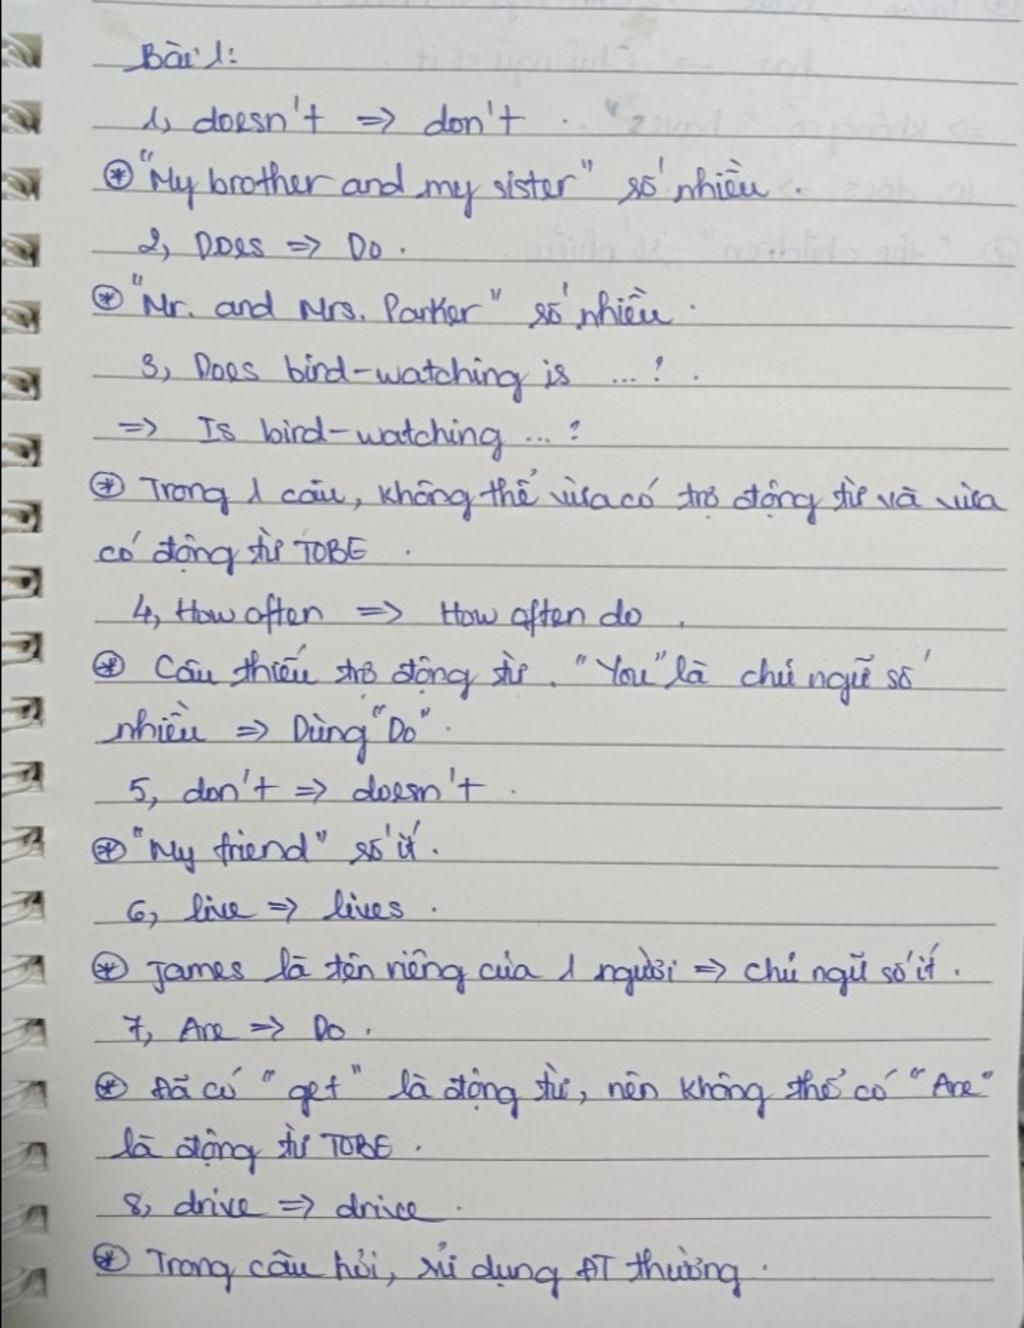 Bài 1:
1, doesn't => don't.
⊛ "My brother and my sister" số nhiều.
2, Does => Do.
⊛ "Mr. and Mrs. Parker" số nhiều.
3, Does bird-watching is ...?.
=> Is bird-watching ...?
⊛ Trong 1 câu, không thể vừa có trợ động từ và vừa
có động từ TOBE.
4, How often => How often do.
⊛ Câu thiếu trợ động từ. "You" là chủ ngữ số
nhiều => Dùng "Do".
5, don't => doesn't.
⊛ "My friend" số ít.
6, live => lives.
⊛ James là tên riêng của 1 người => chủ ngữ số ít.
7, Are => Do.
⊛ Đã có "get" là động từ, nên không thể có "Are"
là động từ TOBE.
8, drive => drive.
⊛ Trong câu hỏi, sử dụng ĐT thường.